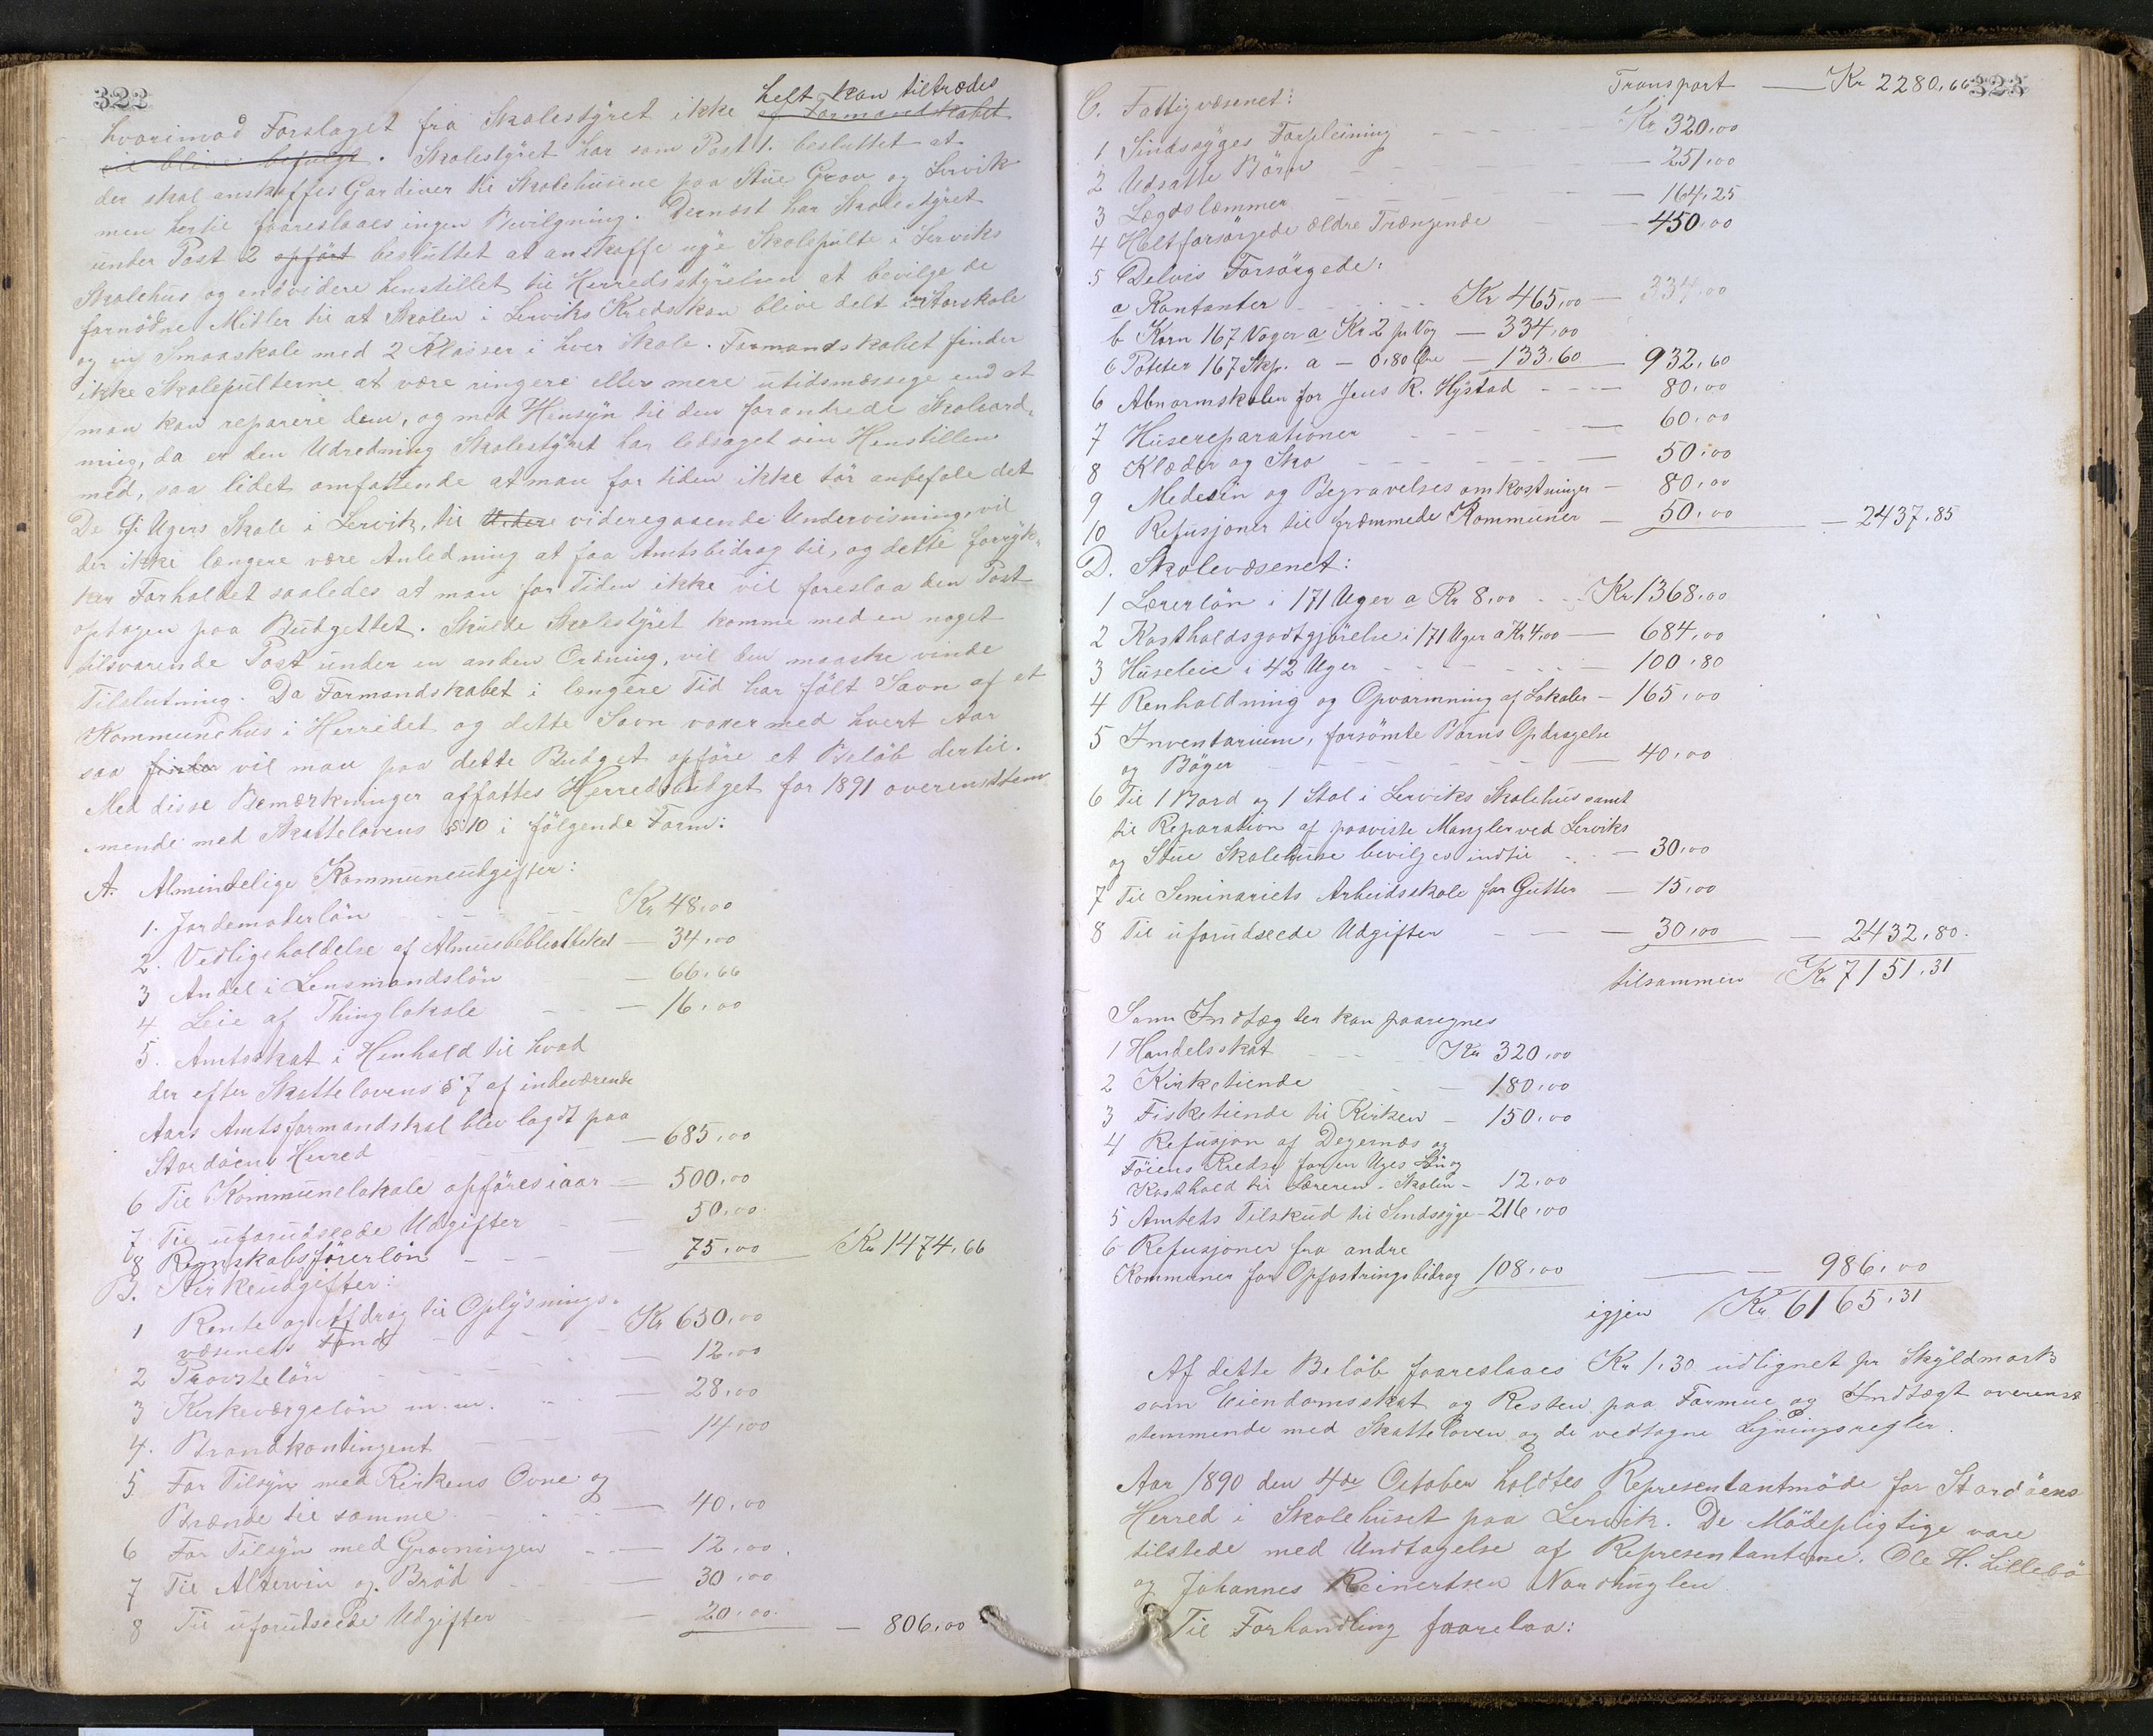 322
hvorimod Forslaget fra Skolestyret ikke helt kan tiltrædes af Formandskabet
vil blive befulgt. Skolestyret har som Post 1. besluttet at
der skal anskaffes Gardiner til Skolehusene paa Stue Grov og Lervik
men hertil foareslaaes ingen Bevilgning. Dernæst har Skolestyret
under Post 2 opført besluttet at anskaffe nye Skolepulte i Lerviks
Skolehus og endvidere henstillet til Herredsstyrelsen at bevilge de
fornødne Midler til at Skolen i Lerviks Kreds kan blive delt i en Storskole
og en Smaaskole med 2 Klasser i hver Skole. Formandskabet finder
ikke Skolepulterne at være ringere eller mere utidsmæssige end at
man kan reparere dem, og med Hensyn til den forandrede Skoleord-
ning, da er den Udredning Skolestyret har ledsaget sin Henstillen
med, saa lidet omfattende at man for tiden ikke tør anbefale det
De 9 Ugers Skole i Lervik, til Videre videregaaende Undervisning, vil
der ikke længere være Anledning at faa Amtsbidrag til, og dette forryk-
ker Forholdet saaledes at man for Tiden ikke vil foreslaa den Post
optagen paa Budgettet. Skulde Skolestyret komme med en noget
tilsvarende Post under en anden Ordning, vil den maaske vinde
Tilslutning. Da Formandskabet i længere Tid har følt Savn af et
Kommunehus i Herredet og dette Savn voxer med hvert Aar
saa finder vil man paa dette Budget opføre et Beløb dertil.
Med disse Bemærkninger affattes Herredsbudget for 1891 overenstem
mende med Skattelovens § 10 i følgende Form:
A. Almindelige Kommuneutgifter:
1. Jordemoderløn Kr 48,00
2. Vedligeholdelse af Almuebibliotheket — 34,00
3 Andel i Lensmandsløn — 66,66
4. Leie af Thinglokale — 16,00
5. Amtsskat i Henhold til hvad
der efter Skattelovens § 7 af indeværende
Aars Amtsformandskal blev lagdt paa
Stordøens Herred — 685,00
6 Til Kommunelokale opføres iaar — 500,00
7 Til uforudseede Udgifter — 50,00
8 Regnskabsførerløn — 75,00 Kr 1474,66
B. Kirkeudgifter:
1 Rente og Afdrag til Oplysnings-
væsenets Fond Kr 650,00
2 Provsteløn — 12,00
3 Kirkeværgeløn m.m. — 28,00
4. Brandkontingent — 14,00
5 For Tilsyn med Kirkens Ovne og
Brænde til samme — 40,00
6 For Tilsyn med Gravningen — 12,00
7 Til Altervin og Brød — 30,00
8 Til uforutseede Udgifter — 20,00 — 806,00
323
Transport — Kr 2280,66
C. Fattigvæsenet:
1 Sindssyges Forpleining Kr 320,00
2 Udsatte Børn — 251,00
3 Lægdslemmer — 164,25
4 Heltforsørgede ældre Trængende — 450,00
5 Delvis Forsørgede:
a Kontanter Kr 465,00 — 334,00
b Korn 167 Voger a Kr 2 pr Vog — 334,00
c Poteter 167 Skp. a — 0,80 Øre — 133,60 — 932,60
6 Abnormskolen for Jens R. Hystad — 80,00
7 Husereparationer — 60,00
8 Klæder og Sko — 50,00
9 Medesin og Begravelsesomkostninger — 80,00
10 Refusjoner til fræmmede Kommuner — 50,00 — 2437,85
D. Skolevæsenet:
1 Lærerløn i 171 Uger a Kr 8,00 Kr 1368,00
2 Kostholdsgodtgjørelse i 171 Uger a Kr 4,00 — 684,00
3 Huseleie i 42 Uger — 100,80
4 Renholdning og Opvarmning af Lokaler — 165,00
5 Inventarium, forsømte Børns Opdragelse
og Bøger — 40,00
6 Til 1 Bord og 1 Stol i Lerviks Skolehus samt
til Reparation af paaviste Mangler ved Lerviks
og Stue Skolehuse bevilges indtil — 30,00
7 Til Seminariets Arbeidsskole for Gutter — 15,00
8 Til uforudseede Udgifter — 30,00 — 2432,80
tilsammen Kr 7151,31
Som Indtægter kan paaregnes
1 Handelsskat Kr 320,00
2 Kirketiende — 180,00
3 Fisketiende til Kirken — 150,00
4 Refusjon af Degernæs og
Føiens Kredse for en Uges Løn og
Kosthold til Læreren — 12,00
5 Amtets Tilskud til Sindssyge — 216,00
6 Refusjoner fra andre
Kommuner for Opfostringsbidrag 108,00 — 986,00
igjen Kr 6165,31
Af dette Beløb foareslaaes Kr 1,30 udlignet pr Skyldmark
som Eiendomsskat og Resten paa Formue og Indtægt overens
stemmende med Skatteloven og de vedtagne Ligningsregler.
Aar 1890 den 4de October holdtes Representantmøde for Stordøens
Herred i Skolehuset paa Lervik. De Mødepligtige vare
tilstede med Undtagelse af Representanterne Ole H. Lillebø
og Johannes Reinertsen Nordhuglen
Til Forhandling foarelaa: